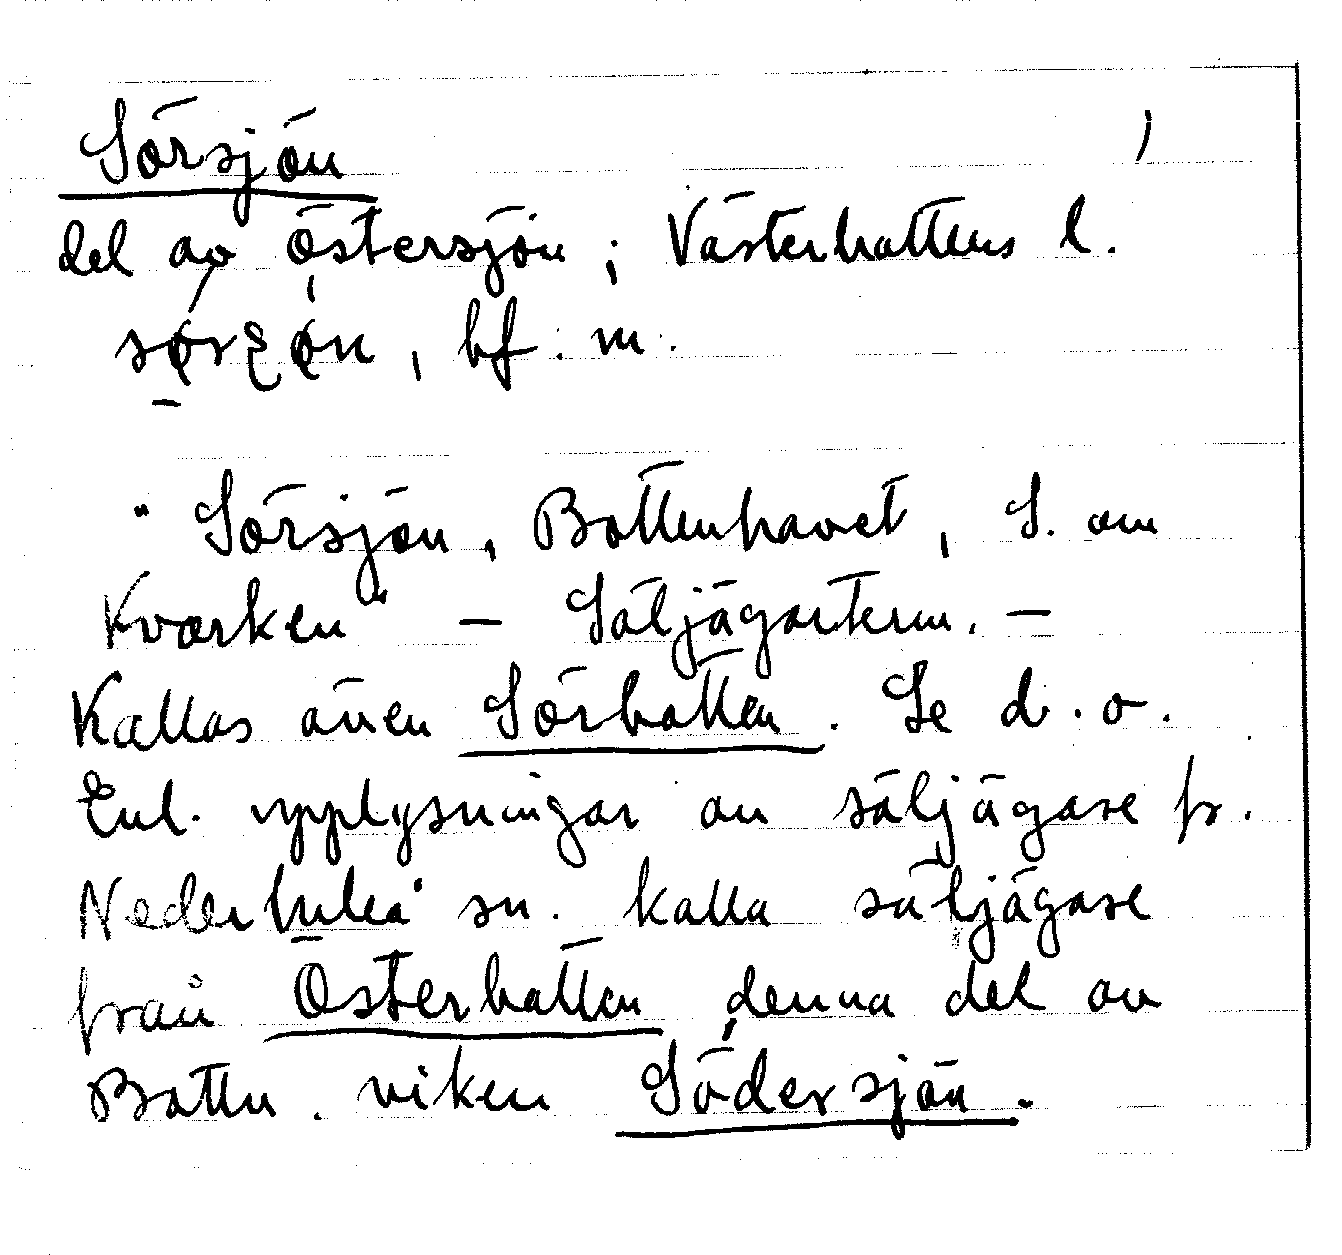 Sörsjön 1
del av Östersjön ; Västerbottens l.
, bf. m.
"Sörsjön, Bottenhavet, S. om
Kvarken" – Säljägarterm. –
Kallas även Sörbotten. Se d. o.
Enl. upplysningar av säljägare fr.
Nederluleå sn. kalla säljägare
från Österbotten denna del av
Bottn. viken Södersjön.